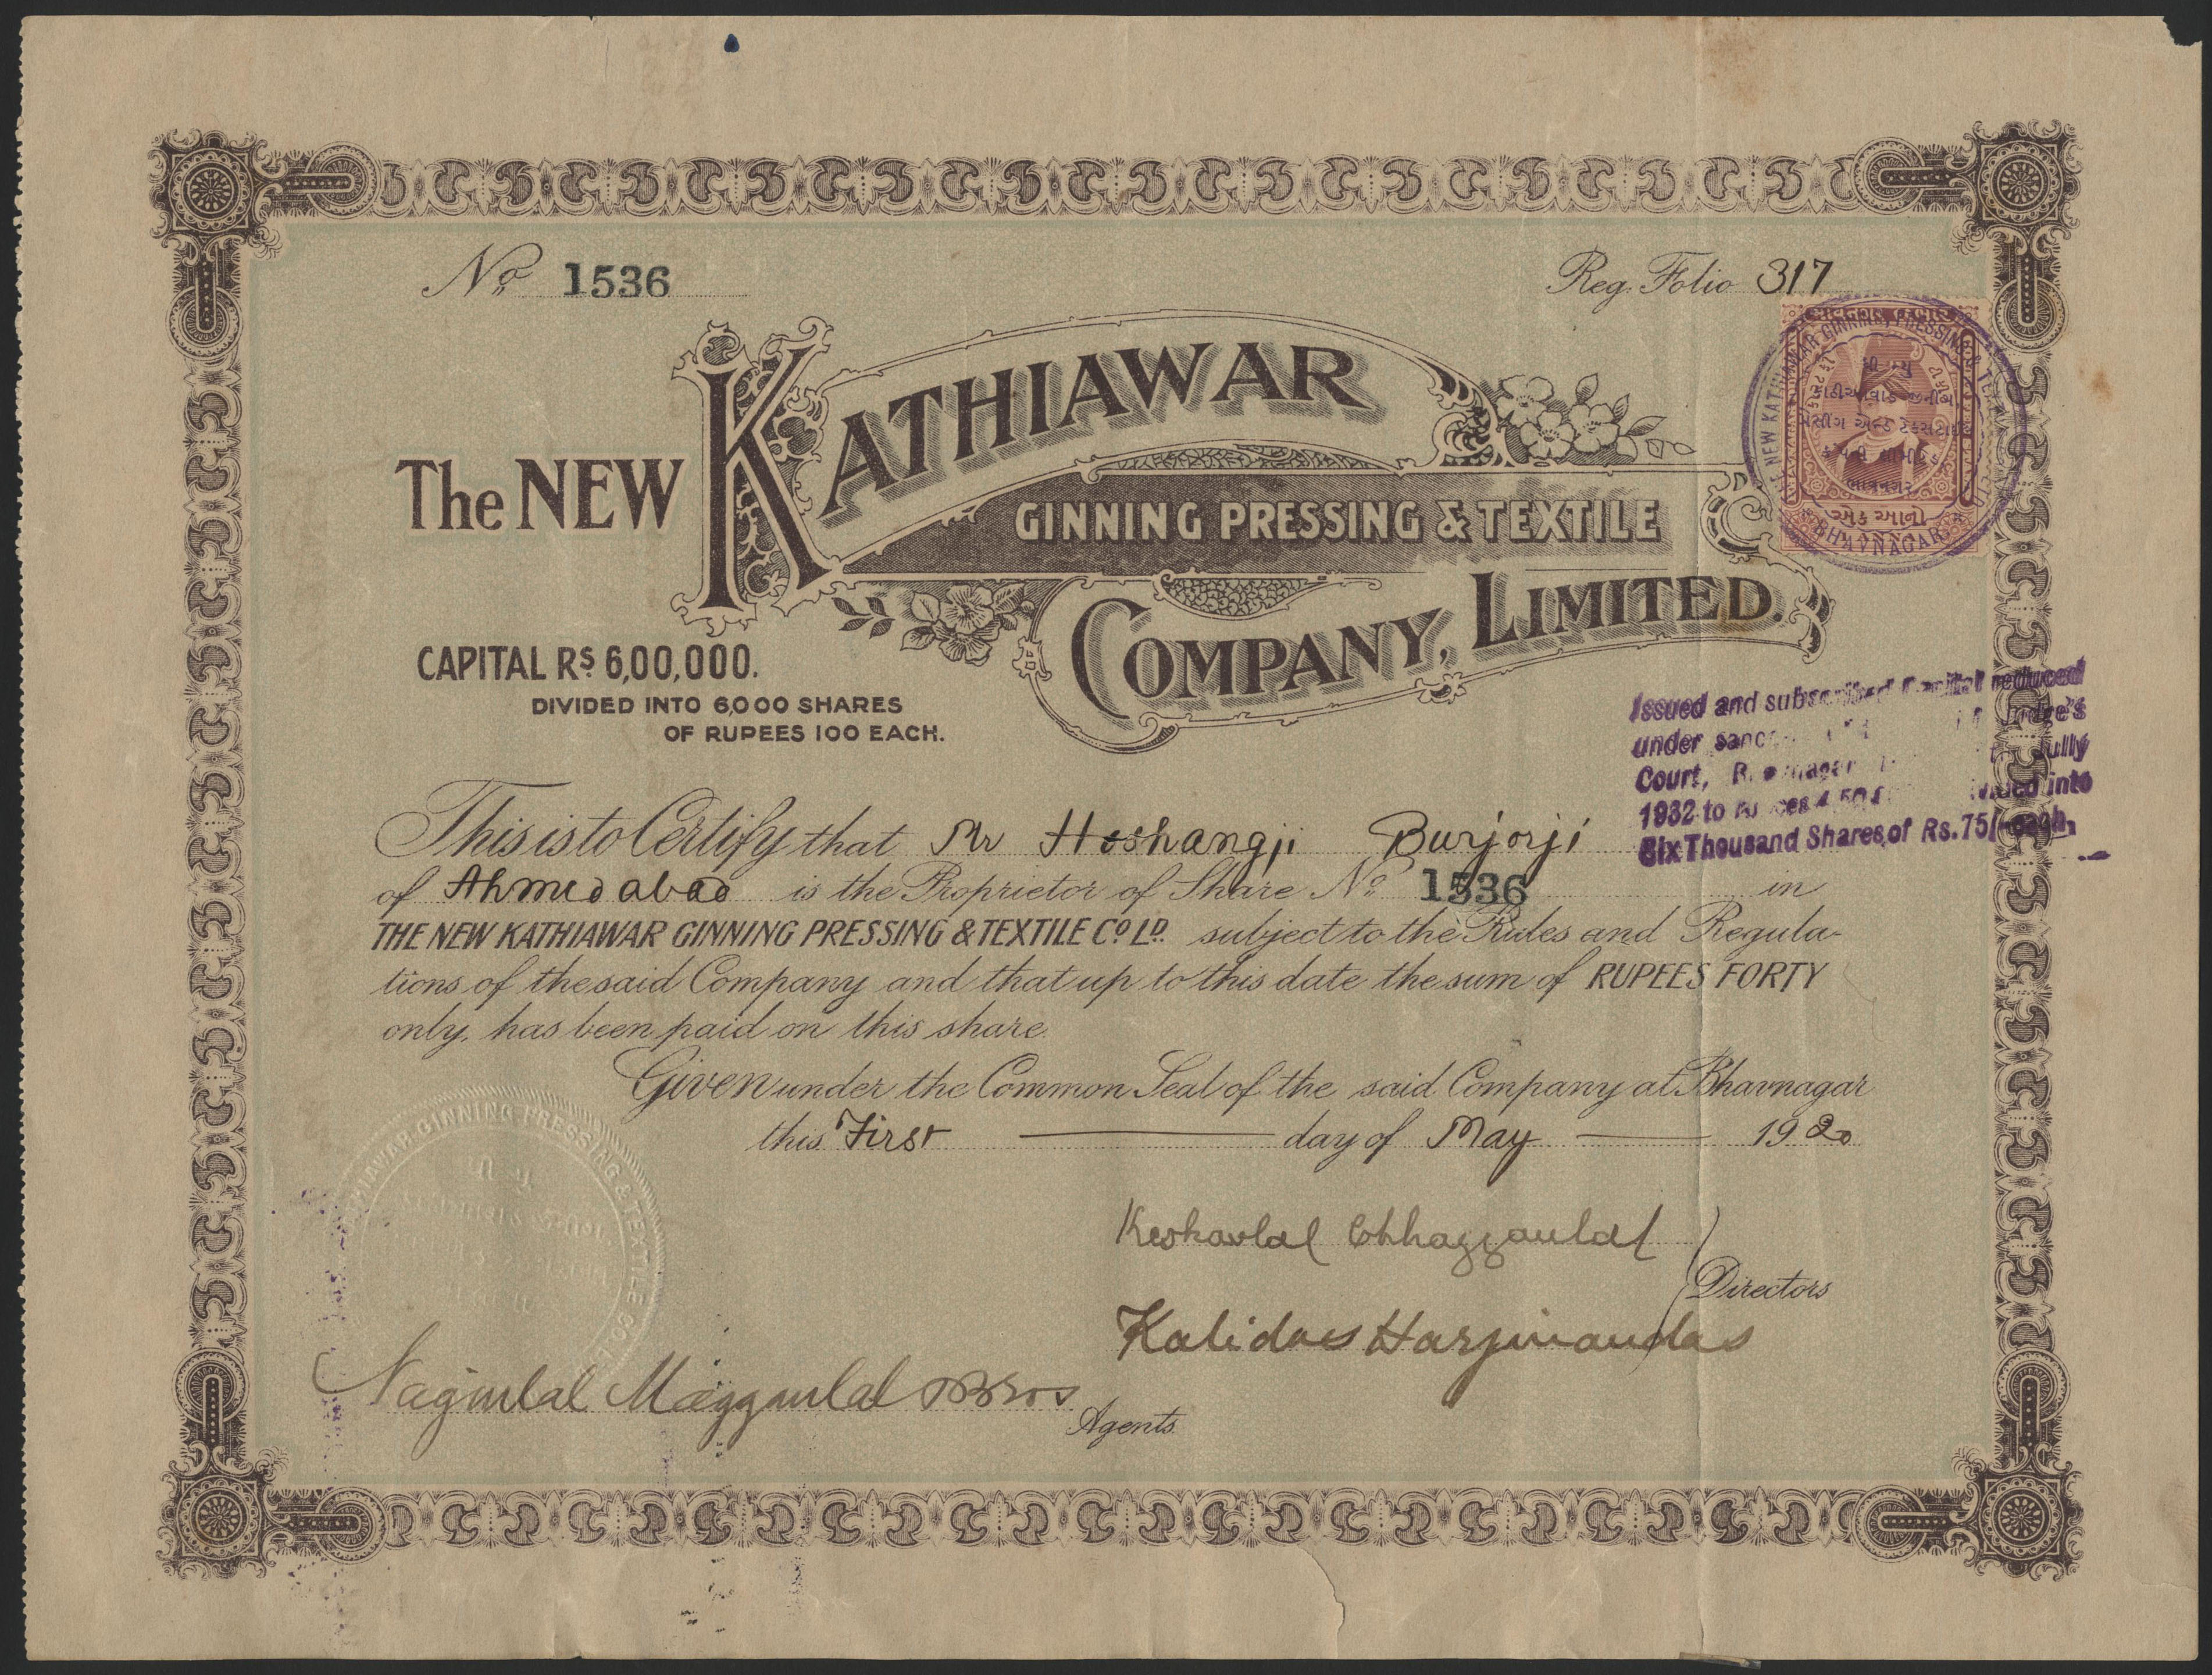 No 1536
Reg. Folio 317
The NEW KATHIAWAR
GINNING PRESSING & TEXTILE
COMPANY, LIMITED.
એક આનો
BHAVNAGAR
CAPITAL RS 6,00,000.
DIVIDED INTO 6,000 SHARES
OF RUPEES 100 EACH.
Issued and subscribed Capital reduced
under
Court,
1932 to
Six Thousand Shares of Rs. 75/- each.
This is to Certify that Mr Hoshangji Burjorji
of Ahmedabad is the Proprietor of Share No 1536 in
THE NEW KATHIAWAR GINNING PRESSING & TEXTILE Co LD. subject to the Rules and Regula-
tions of the said Company and that up to this date the sum of RUPEES FORTY
only, has been paid on this share.
Given under the Common Seal of the said Company at Bhavnagar
this First day of May 1920
KATHIAWAR GINNING PRESSING & TEXTILE CO.
Keshavlal Chhagganlal
Directors
Kalidas Harjivandas
Naginlal Magganlal & Bros
Agents.